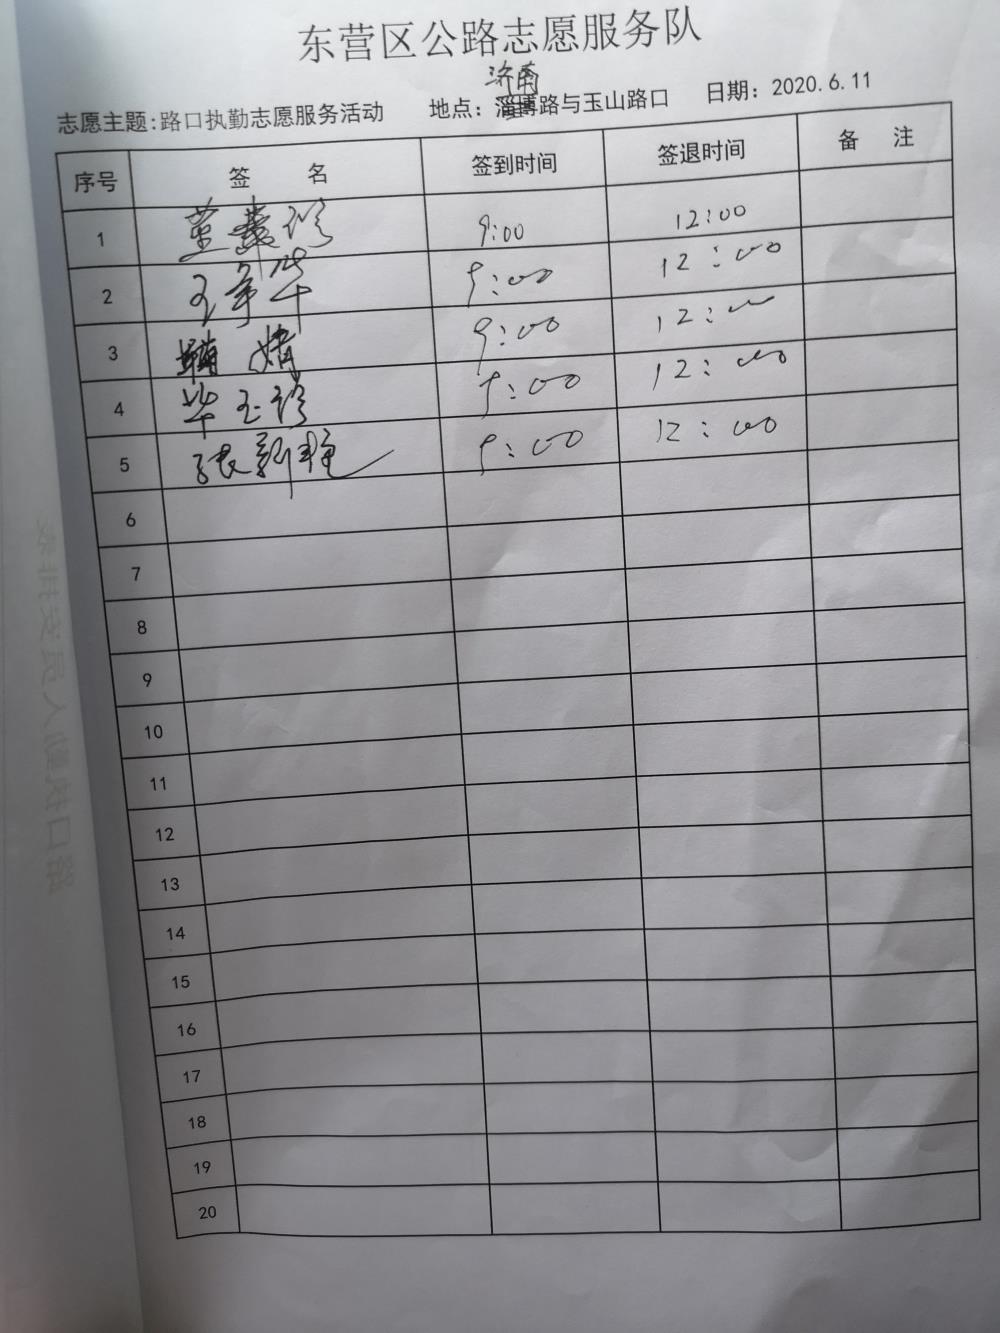 东营区公路志愿服务队
济南
志愿主题:路口执勤志愿服务活动 地点:淄博路与玉山路口 日期: 2020.6.11
序号 签 名 签到时间 签退时间 备 注
1 9:00 12:00
2 王军华 9:00 12:00
3 婧 9:00 12:00
4 毕玉珍 9:00 12:00
5 张新艳 9:00 12:00
6
7
8
9
10
11
12
13
14
15
16
17
18
19
20